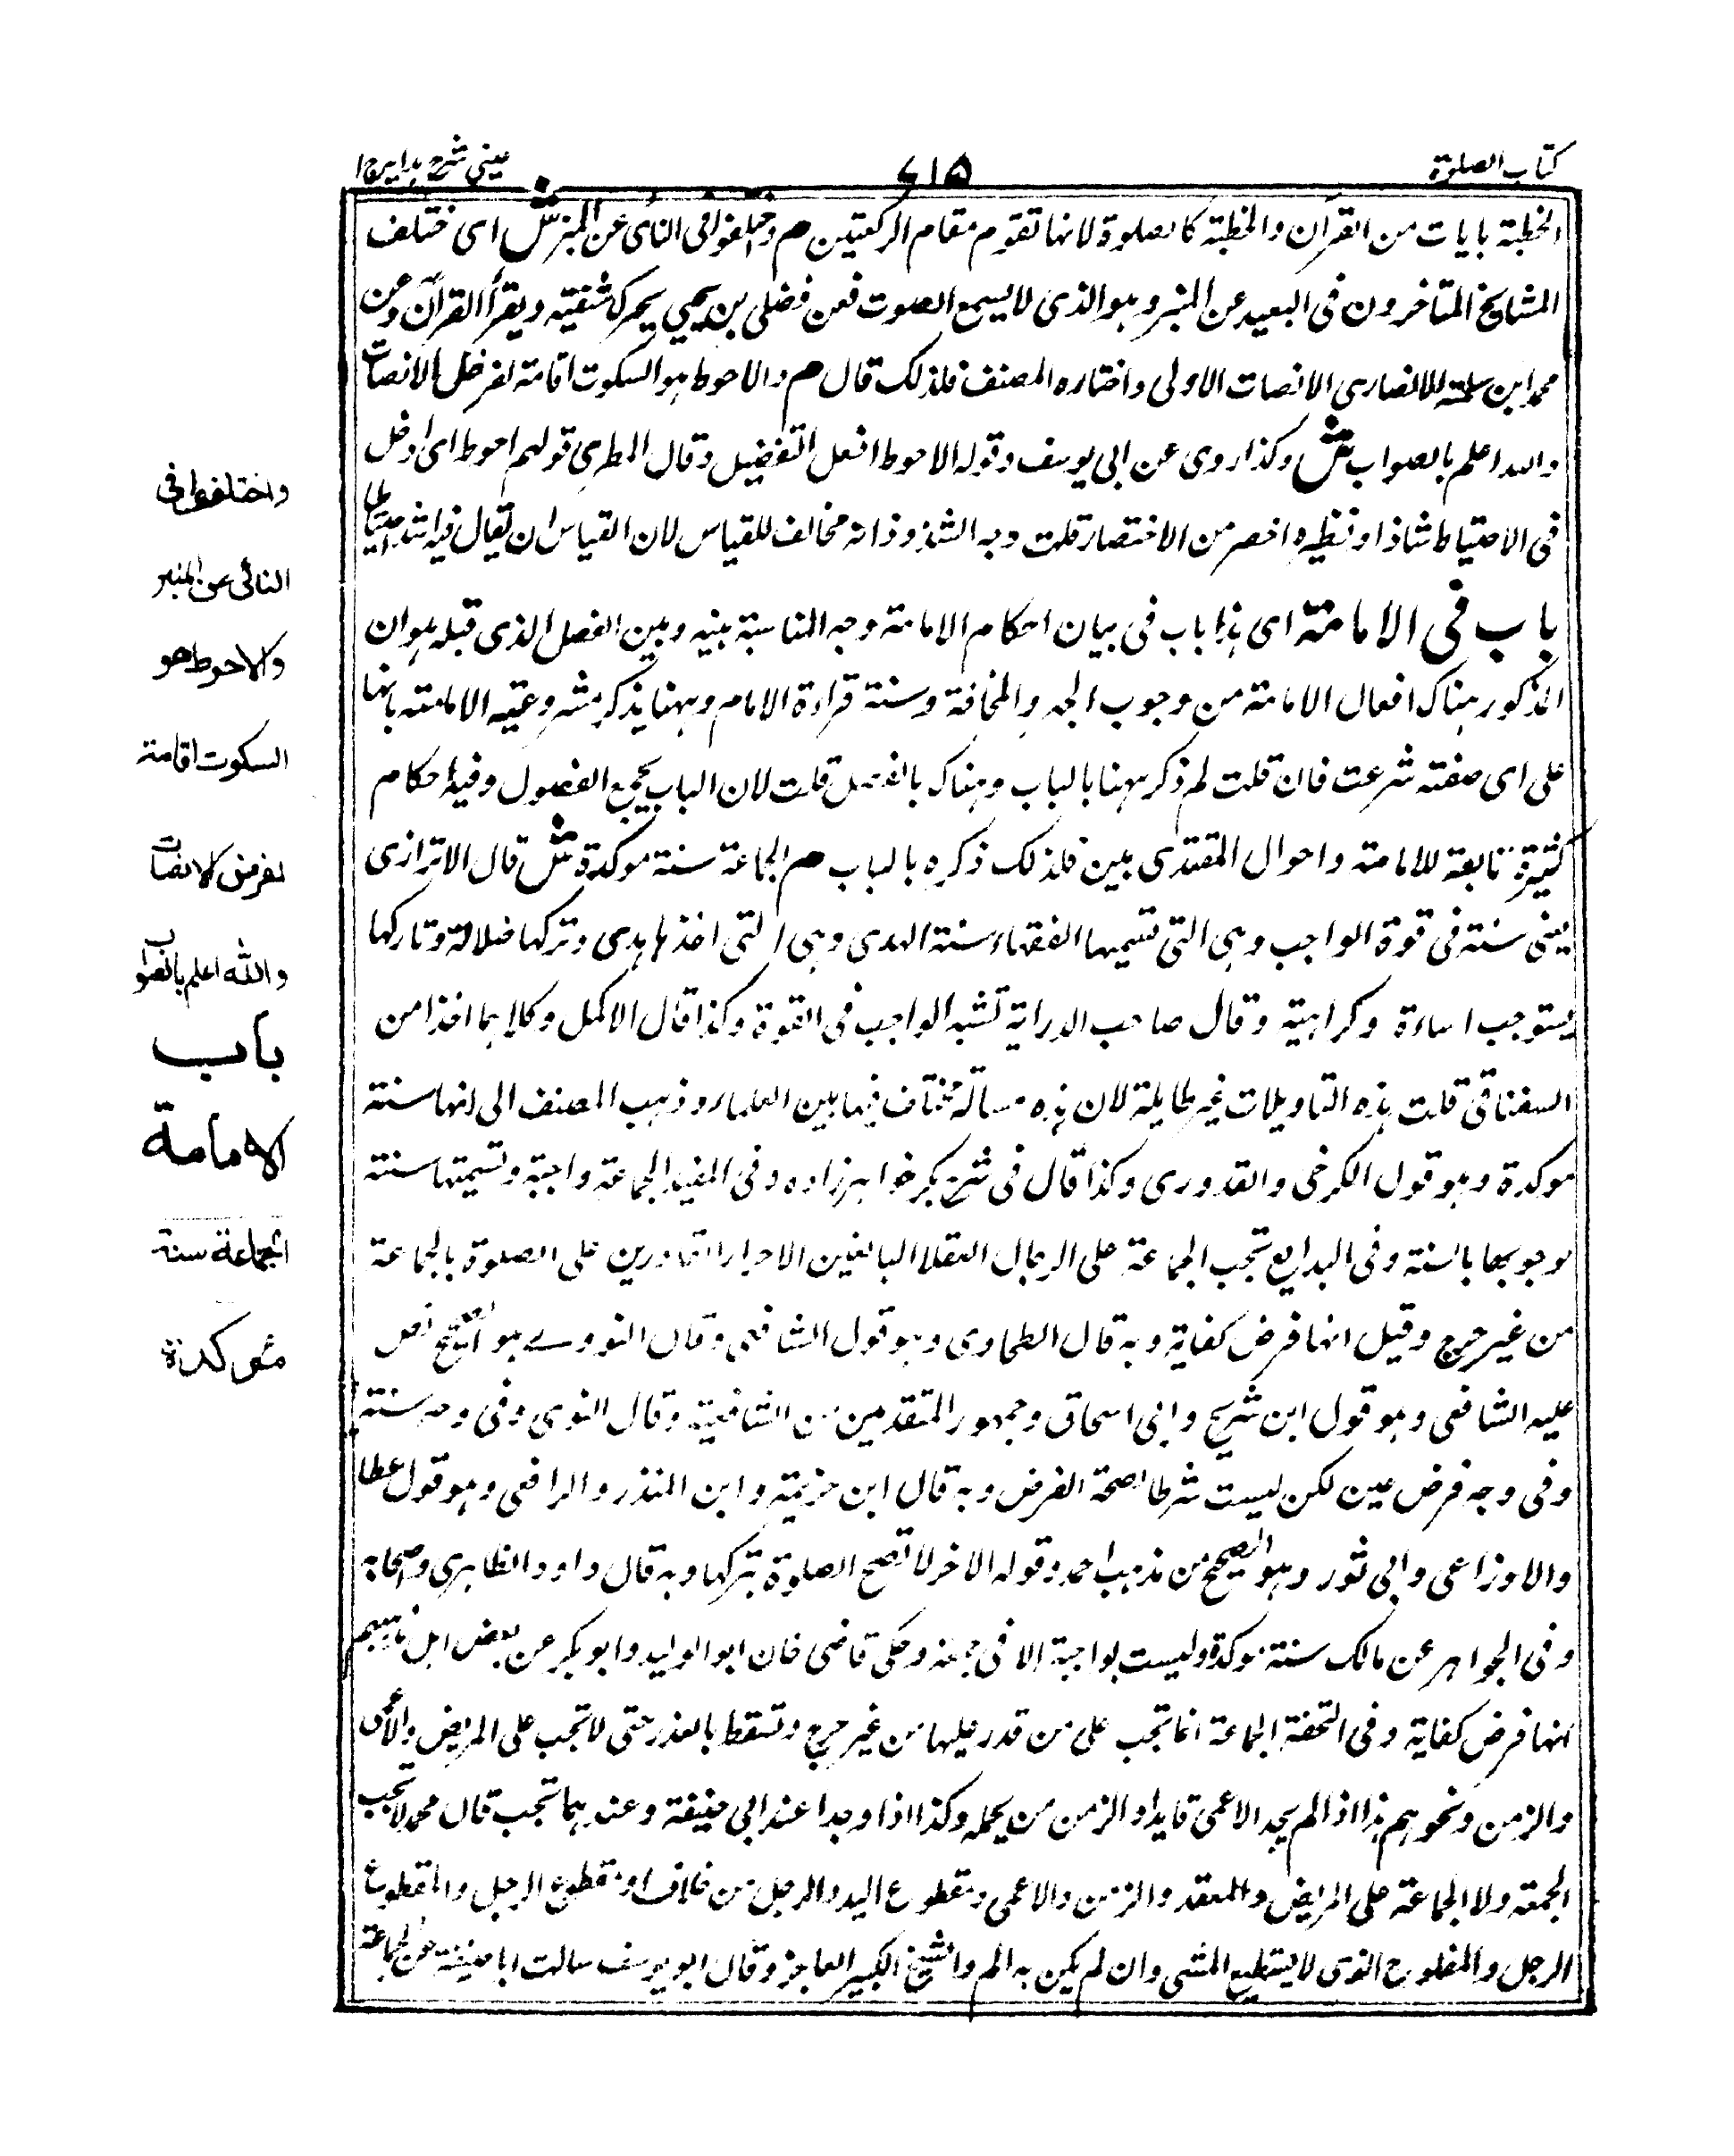 كتاب الصلوة
٧١٥
عيني شرح هدايه ج ١
الخطبة بايات من القرآن والخطبة كالصلوة لانها تقوم مقام الركعتين م واختلفوا فى النائى عن المنبر ش اى ختلف
المشايخ المتاخرون فى البعيد عن المنبر وهو الذى لا يسمع الصوت فعن فضلى بن يحيي يحرك شفتيه ويقرأ القرآن وعن
محمد ابن سلمة للانصارى الانصات الاولى واختاره المصنف فلذلك قال م والاحوط هو السكوت اقامة لفرض الانصات
والله اعلم بالصواب ش وكذا روى عن ابى يوسف وقوله الاحوط افعل التفضيل وقال المطرى قولهم احوط اى ادخل
فى الاحتياط شاذ ونظيره اخصر من الاختصار قلت وجه الشذوذ انه مخالف للقياس لان القياس ان يقال فيه اشد احتياطا
باب فى الامامة اى هذا باب فى بيان احكام الامامة وجه المناسبة بينه وبين الفصل الذى قبله هو ان
المذكور هناك افعال الامامة من وجوب الجهر والمخافة وسنة قراءة الامام وههنا يذكر مشروعية الامامة بانها
على اى صفته شرعت فان قلت لم ذكر ههنا بالباب وهناك بالفصل قلت لان الباب يجمع الفصول وفيه احكام
كثيرة تابعة للامامة واحوال المقتدى بين فلذلك ذكره بالباب م الجماعة سنة موكدة ش قال الاترازى
يعنى سنة فى قوة الواجب وهى التى تسميها الفقهاء سنة الهدى وهى التى اخذها هدى وتركها ضلالة وتاركها
يستوجب اساءة وكراهية وقال صاحب الدراية تشبه الواجب فى القوة وكذا قال الاكمل وكلاهما اخذا من
السغناقى قلت هذه التاويلات غير طايلة لان هذه مسالة مختلف فيها بين العلماء وذهب المصنف الى انها سنة
موكدة وهو قول الكرخى والقدورى وكذا قال فى شرح بكر خواهرزاده وفى المفيد الجماعة واجبة وتسميتها سنة
لوجوبها بالسنة وفى البدايع تجب الجماعة على الرجال العقلا البالغين الاحرار القادرين على الصلوة بالجماعة
من غير حرج وقيل انها فرض كفاية وبه قال الطحاوى وهو قول الشافعى وقال النووى هو الصحيح نص
عليه الشافعى وهو قول ابن شريح وابى اسحاق وجمهور المتقدمين من الشافعية وقال النوى وفى وجه سنة
وفى وجه فرض عين لكن ليست شرطا لصحة الفرض وبه قال ابن خزيمة وابن المنذر والرافعى وهو قول عطا
والاوزاعى وابى ثور وهو الصحيح من مذهب احمد وقوله الاخر لا تصح الصلوة بتركها وبه قال داود الظاهرى واصحابه
وفى الجواهر عن مالك سنة موكدة وليست بواجبة الا فى جمعة وحكى قاضى خان ابو الوليد وابو بكر عن بعض اهل مذهبهم
انها فرض كفاية وفى التحفة الجماعة انما تجب على من قدر عليها من غير حرج وتسقط بالعذر حتى لا تجب على المريض والاعمى
والزمن ونحوهم هذا اذا لم يجد الاعمى قايدا والزمن من يحمله وكذا اذا وجدا عند ابى حنيفة وعندهما تجب قال محمد لا تجب
الجمعة ولا الجماعة على المريض والمقعد والزمن والاعمى ومقطوع اليد والرجل من خلاف او مقطوع الرجل والمقطوع
الرجل والمفلوج الذى لا يستطيع المشى وان لم يكن به الم والشيخ الكبير العاجز وقال ابو يوسف سالت ابا حنيفة عن الجماعة
واختلفوا فى
النائى عن المنبر
والاحوط هو
السكوت اقامة
لفرض الانصات
والله اعلم بالصواب
باب
الامامة
الجماعة سنة
مؤكدة